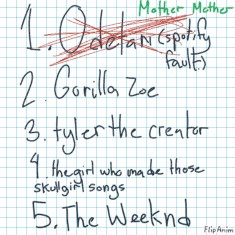 Mother Mother
1. Odetari (spotify
fault)
2. Gorilla Zoe
3. tyler the creator
4. the girl who made those
skullgirl songs
5. The Weeknd
FlipAnim